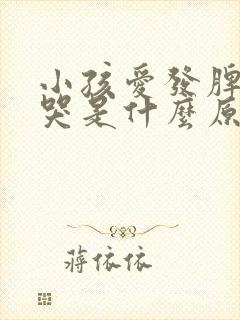 小孩愛發脾
哭是什麼原
蔣依依